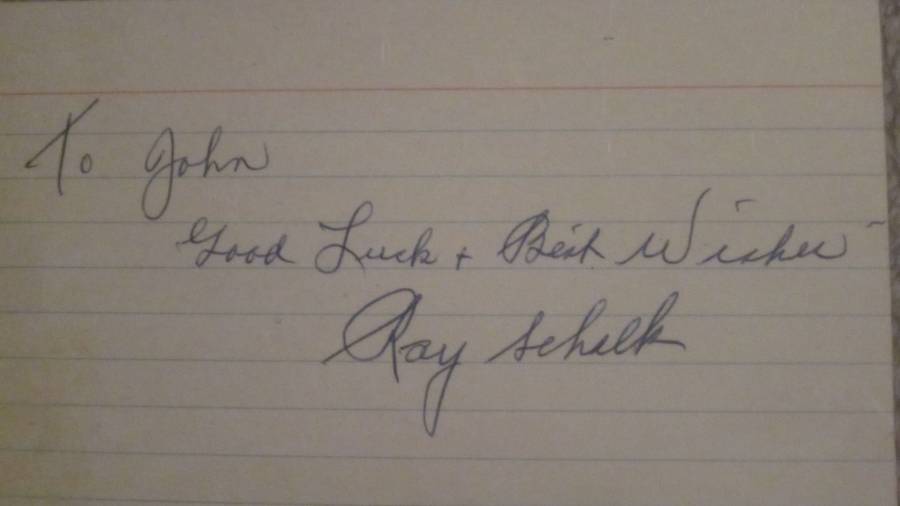 To John
Good Luck + Best Wishes -
Ray Schalk